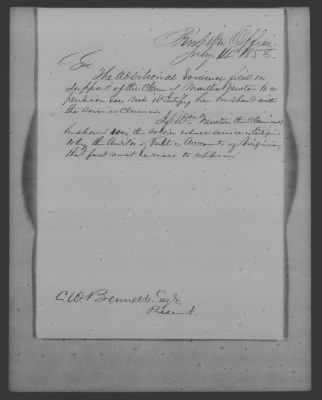 Pension Office
July 14 1858.
Sir
The Additional Evidence filed in
support of the Claim of Martha Newton to a
pension does not identify her husband with
the service claimed.
If Wm Newton the Claimant's
husband was the
by the Auditor of Public Accounts of Virginia
that fact must be made to appear
C. W. Bennett Esqr.
Present.